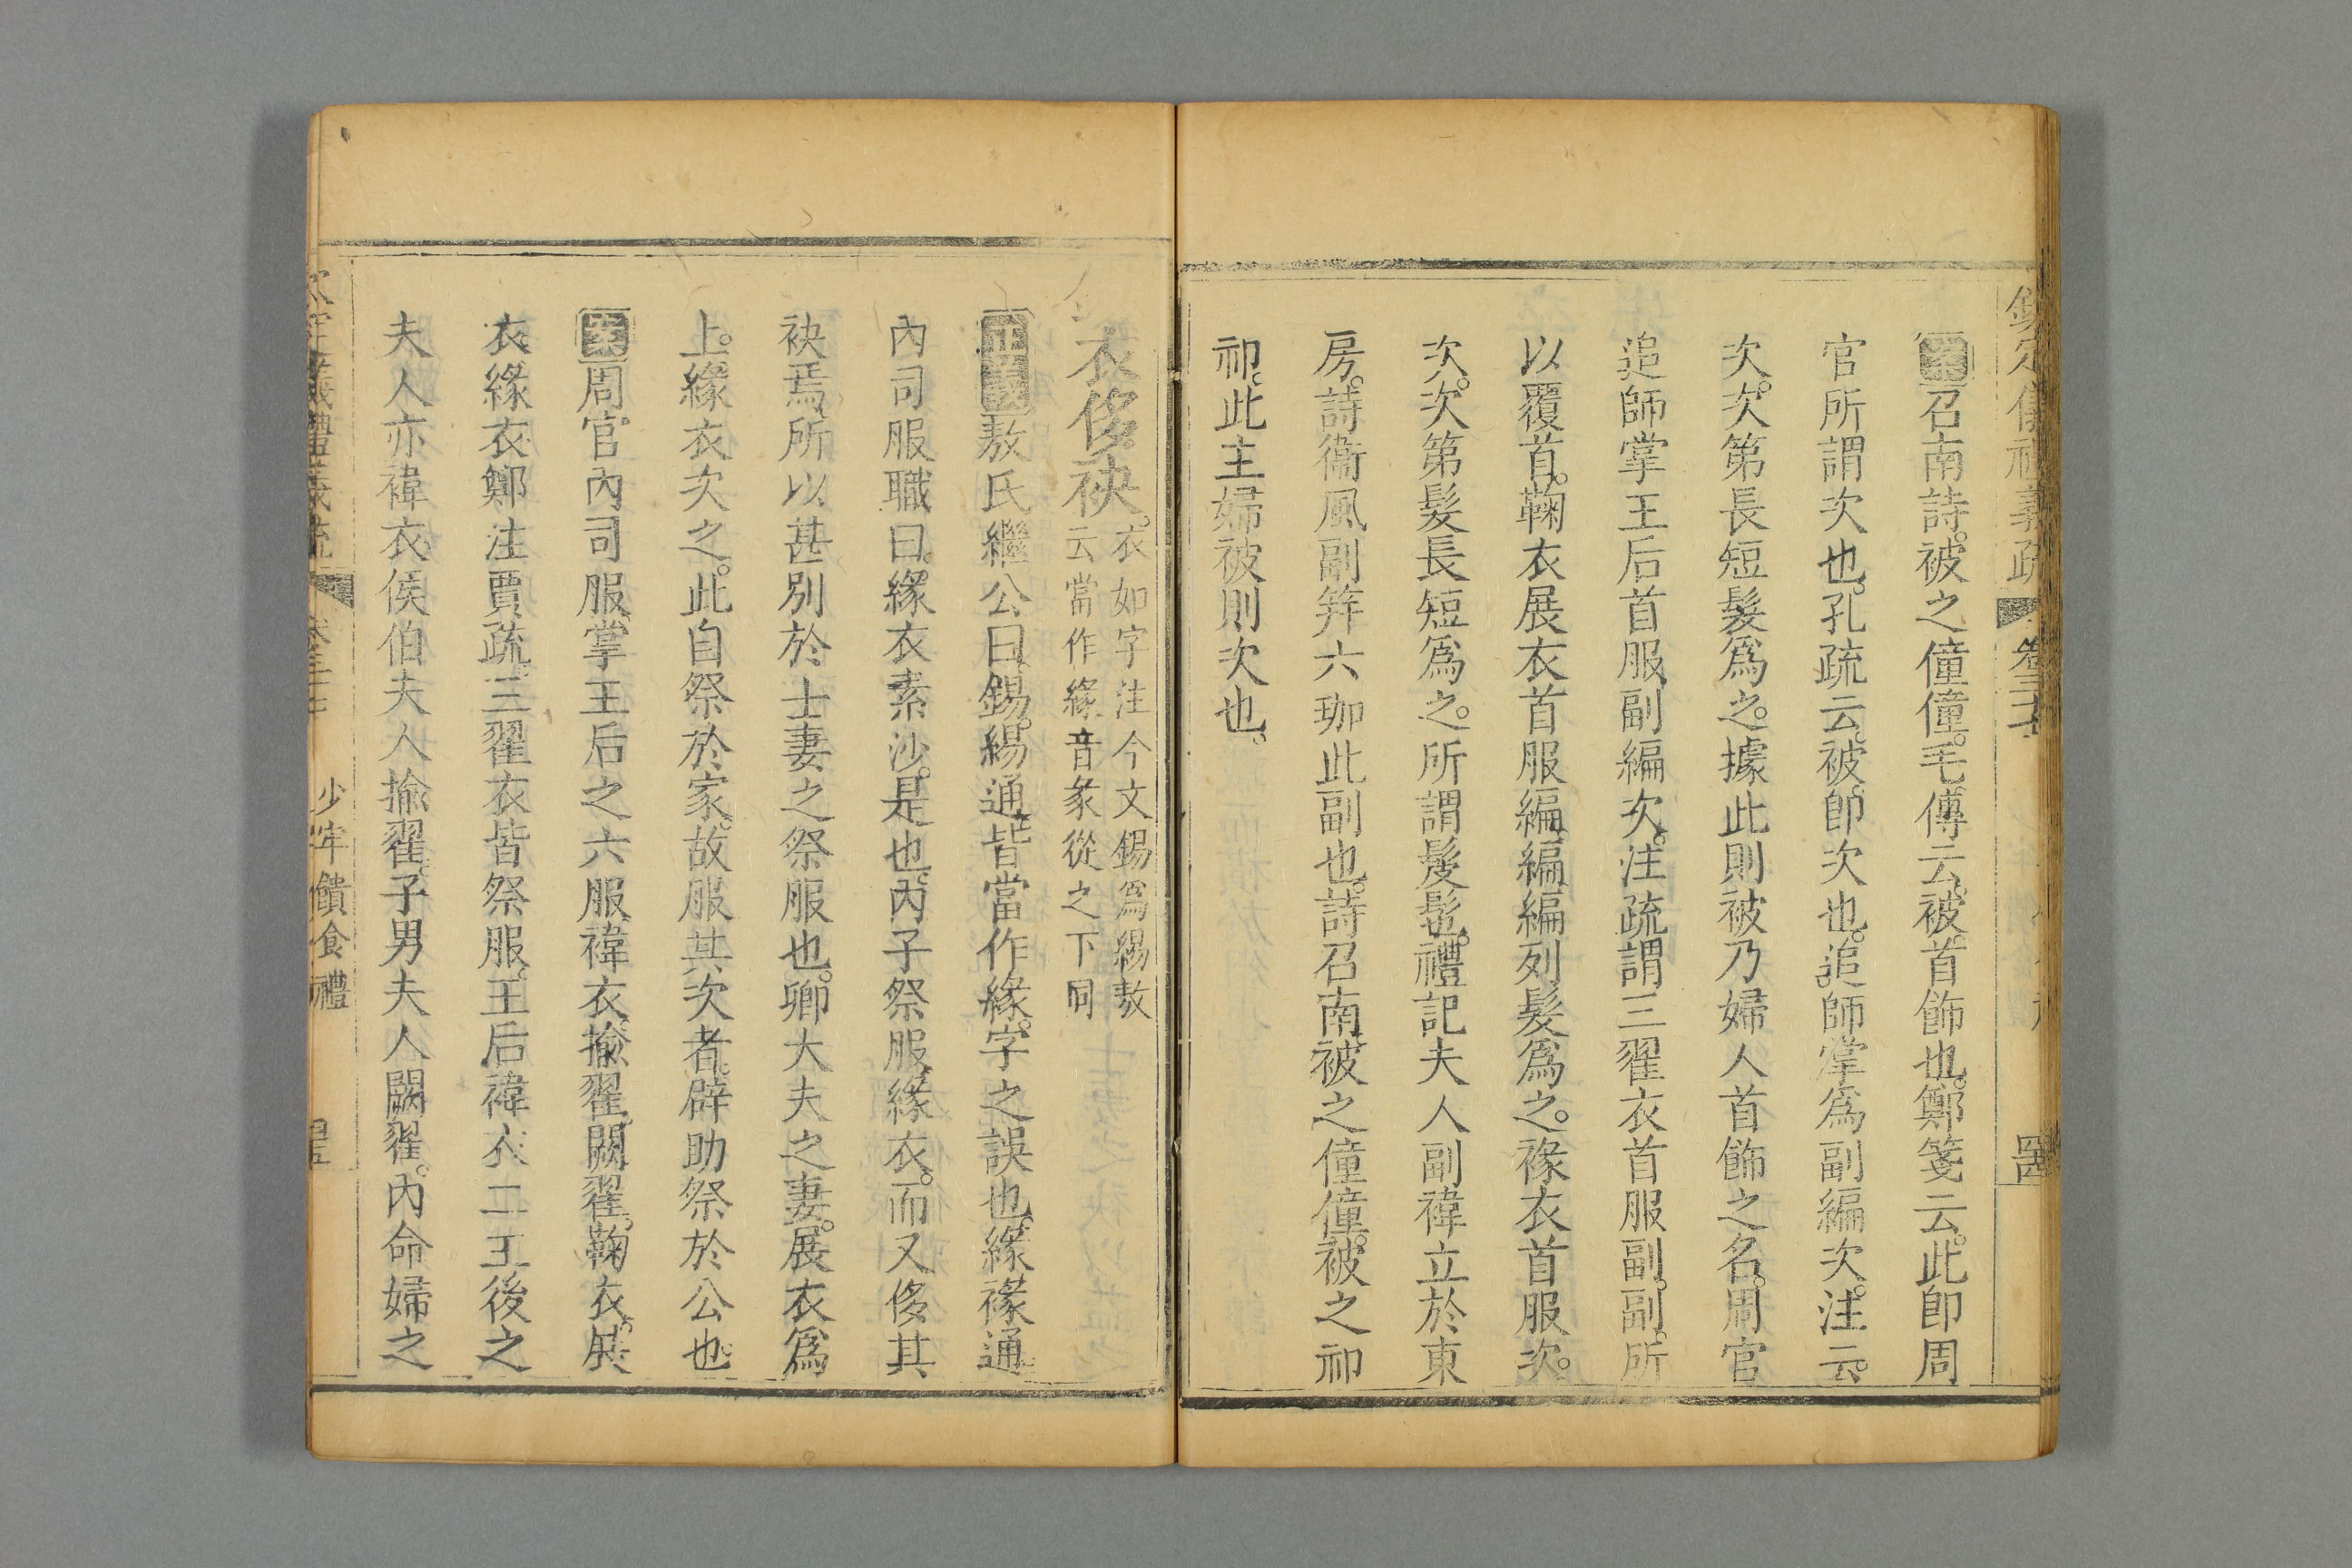 欽定儀禮義疏 卷三十六 罒
案召南詩。被之僮僮。毛傳云。被。首飾也。鄭箋云。此卽周
官所謂次也。孔疏云。被。卽次也。追師掌爲副編次。注云。
次。次第長短髮爲之。據此則被乃婦人首飾之名。周官
追師掌王后首服副編次。注疏謂三翟衣首服副。副。所
以覆首。鞠衣展衣首服編。編。編列髮爲之。褖衣首服次。
次。次第髮長短爲之。所謂髲髢。禮記夫人副褘立於東
房。詩衞風副笄六珈此副也。詩召南被之僮僮。被之祁
祁。此主婦被則次也。
衣侈袂。
衣如字注今文錫爲緆敖
云當作緣音彖從之下同
正義敖氏繼公曰。錫。緆通。皆當作緣。字之誤也。緣褖通。
內司服職曰。緣衣素沙。是也。內子祭服。緣衣。而又侈其
袂焉。所以甚別於士妻之祭服也。卿大夫之妻。展衣爲
上。緣衣次之。此自祭於家。故服其次者。辟助祭於公也。
案周官內司服。掌王后之六服。褘衣。揄翟。闕翟。鞠衣。展
衣。緣衣。鄭注賈疏。三翟衣皆祭服。王后褘衣。二王後之
夫人亦褘衣。侯伯夫人揄翟。子男夫人闕翟。內命婦之
欽定儀禮義疏 卷三十 少牢饋食禮 罒五